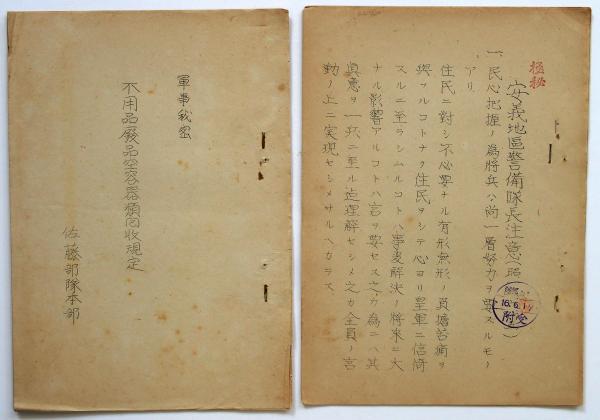 軍事秘密
不用品廢品空容器類回收規定
佐藤部隊本部
極秘
安義地區警備隊長注意
一、民心把握ノ為將兵ハ尚一層努力ヲ要スルモノ
アリ
住民ニ對シ不必要ナル有形無形ノ負擔苦痛ヲ
與フルコトナク住民ヲシテ心ヨリ皇軍ニ信倚
スルニ至ラシムルコトハ事変解決ノ將来ニ大
ナル影響アルコトハ言ヲ要セス之カ為ニハ其
真意ヲ一兵ニ至ル迄理解セシメ之カ全員ノ言
動ノ上ニ実現セシメサルヘカラス
16.6.17
受附